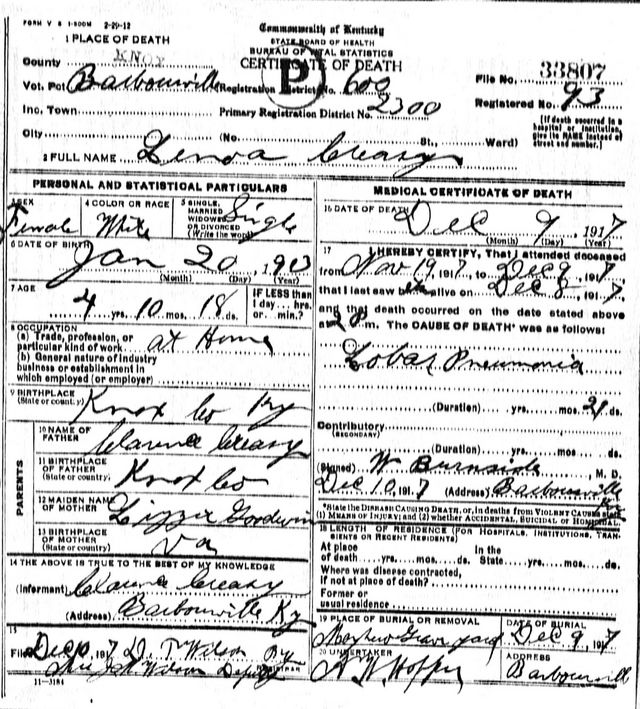 FORM V S 1-500M 2-29-12
1 PLACE OF DEATH
County KNOX
Vot. Pct Barbourville
Inc. Town
City
Commonwealth of Kentucky
STATE BOARD OF HEALTH
BUREAU OF VITAL STATISTICS
CERTIFICATE OF DEATH
P
Registration District No. 600
Primary Registration District No. 2300
(No. St., Ward)
File No. 33807
Registered No. 93
[If death occurred in a
hospital or institution,
give its NAME instead of
street and number.]
2 FULL NAME Lenoa Creasy
PERSONAL AND STATISTICAL PARTICULARS
3 SEX Female
4 COLOR OR RACE White
5 SINGLE, MARRIED WIDOWED OR DIVORCED (Write the word) Single
6 DATE OF BIRTH Jan 20, 1913
(Month) (Day) (Year)
7 AGE 4 yrs. 10 mos. 18 ds.
IF LESS than
1 day... hrs.
or min.?
8 OCCUPATION
(a) Trade, profession, or
particular kind of work at Home
(b) General nature of industry
business or establishment in
which employed (or employer)
9 BIRTHPLACE
(State or country) Knox Co Ky
PARENTS
10 NAME OF
FATHER Clarence Creasy
11 BIRTHPLACE
OF FATHER
(State or country) Knox Co
12 MAIDEN NAME
OF MOTHER Lizzie Goodwin
13 BIRTHPLACE
OF MOTHER
(State or country) Va
14 THE ABOVE IS TRUE TO THE BEST OF MY KNOWLEDGE
(Informant) Clarence Creasy
(Address) Barbourville Ky
15
Filed Dec 10, 1917 Wilson
J. H. Wilson Deputy REGISTRAR
11-3184
MEDICAL CERTIFICATE OF DEATH
16 DATE OF DEATH Dec 9, 1917
(Month) (Day) (Year)
17 I HEREBY CERTIFY, That I attended deceased
from Nov 19, 1917, to Dec 9, 1917
that I last saw h alive on Dec 8, 1917
and that death occurred on the date stated above
at m. The CAUSE OF DEATH* was as follows:
Lobar Pneumonia
(Duration) yrs. mos. 21 ds.
Contributory
(SECONDARY)
(Duration) yrs. mos. ds.
(Signed) W Burnside M. D.
Dec 10, 1917 (Address) Barbourville Ky
*State the DISEASE CAUSING DEATH, or, in deaths from VIOLENT CAUSES state
(1) MEANS OF INJURY; and (2) whether ACCIDENTAL, SUICIDAL OR HOMICIDAL.
18 LENGTH OF RESIDENCE (FOR HOSPITALS, INSTITUTIONS, TRANSIENTS OR RECENT RESIDENTS)
At place In the
of death yrs. mos. ds. State yrs. mos. ds.
Where was disease contracted,
if not at place of death?
Former or
usual residence
19 PLACE OF BURIAL OR REMOVAL Grave yard
DATE OF BURIAL Dec 9, 1917
20 UNDERTAKER
ADDRESS Barbourville